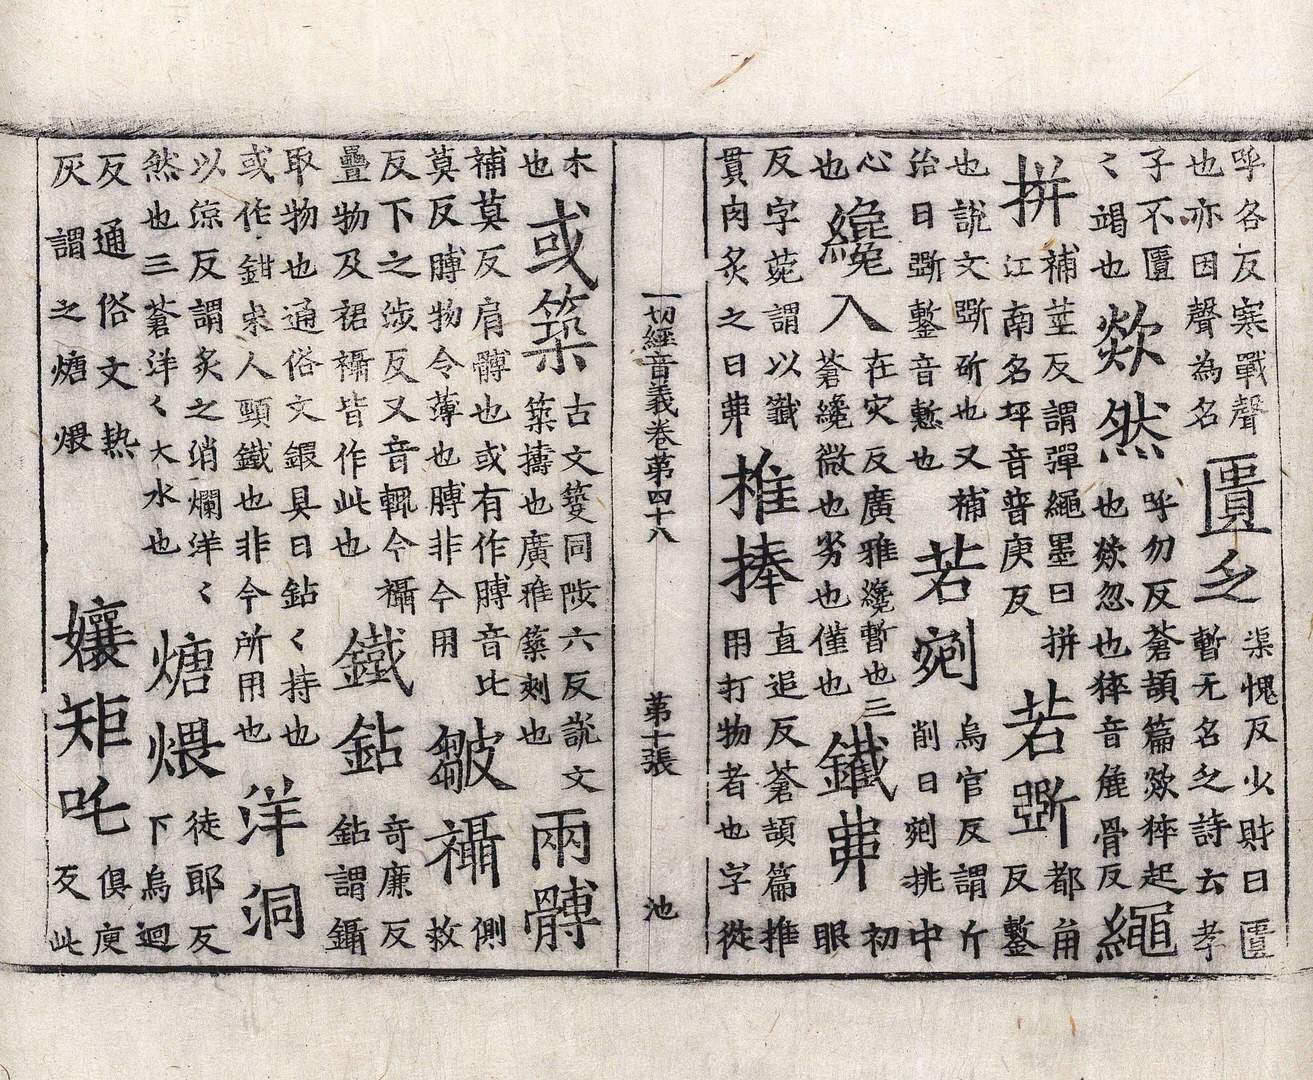 呼各反寒戰聲也亦因聲為名匱乏渠愧反少財曰匱暫无名乏詩云孝
子不匱〻竭也欻然呼勿反蒼頡篇欻猝起也欻忽也猝音麁骨反繩
拼補莖反謂彈繩墨曰拼江南名坪音普庚反若斲都角反鏨
也說文斲斫也又補治曰斲鏨音慙也若剜烏官反謂斤削曰剜挑中
心也纔入在灾反廣雅纔暫也三蒼纔微也劣也僅也鐵丳初眼
反字苑謂以籤貫肉炙之曰丳椎捧直追反蒼頡篇椎用打物者也字從
一切經音義卷第四十八 第十張 池
木也或築古文䇍同陟六反說文築擣也廣雅築刺也兩髆
補莫反肩髆也或有作膊音比莫反膊物令薄也膊非今用皺襵側救
反下之涉反又音輒今襵疊物及裙襵皆作此也鐵鉆奇廉反鉆謂鑷
取物也通俗文鍛具曰鉆〻持也或作鉗束人頸鐵也非今所用也洋洞
以涼反謂炙之消爛洋〻然也三蒼洋〻大水也煻煨徒郎反下烏迴
反通俗文热灰謂之煻煨孃矩吒俱庾反此